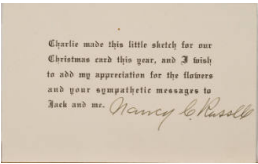 Charlie made this little sketch for our
Christmas card this year, and I wish
to add my appreciation for the flowers
and your sympathetic messages to
Jack and me. Nancy C. Russell